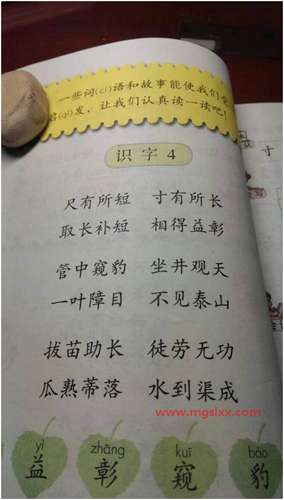 一些词(cí)语和故事能使我们受
启(qǐ)发，让我们认真读一读吧！
识字4
尺有所短 寸有所长
取长补短 相得益彰
管中窥豹 坐井观天
一叶障目 不见泰山
拔苗助长 徒劳无功
瓜熟蒂落 水到渠成
www.mgslxx.com
yì zhāng kuī bào
益 彰 窥 豹
寸